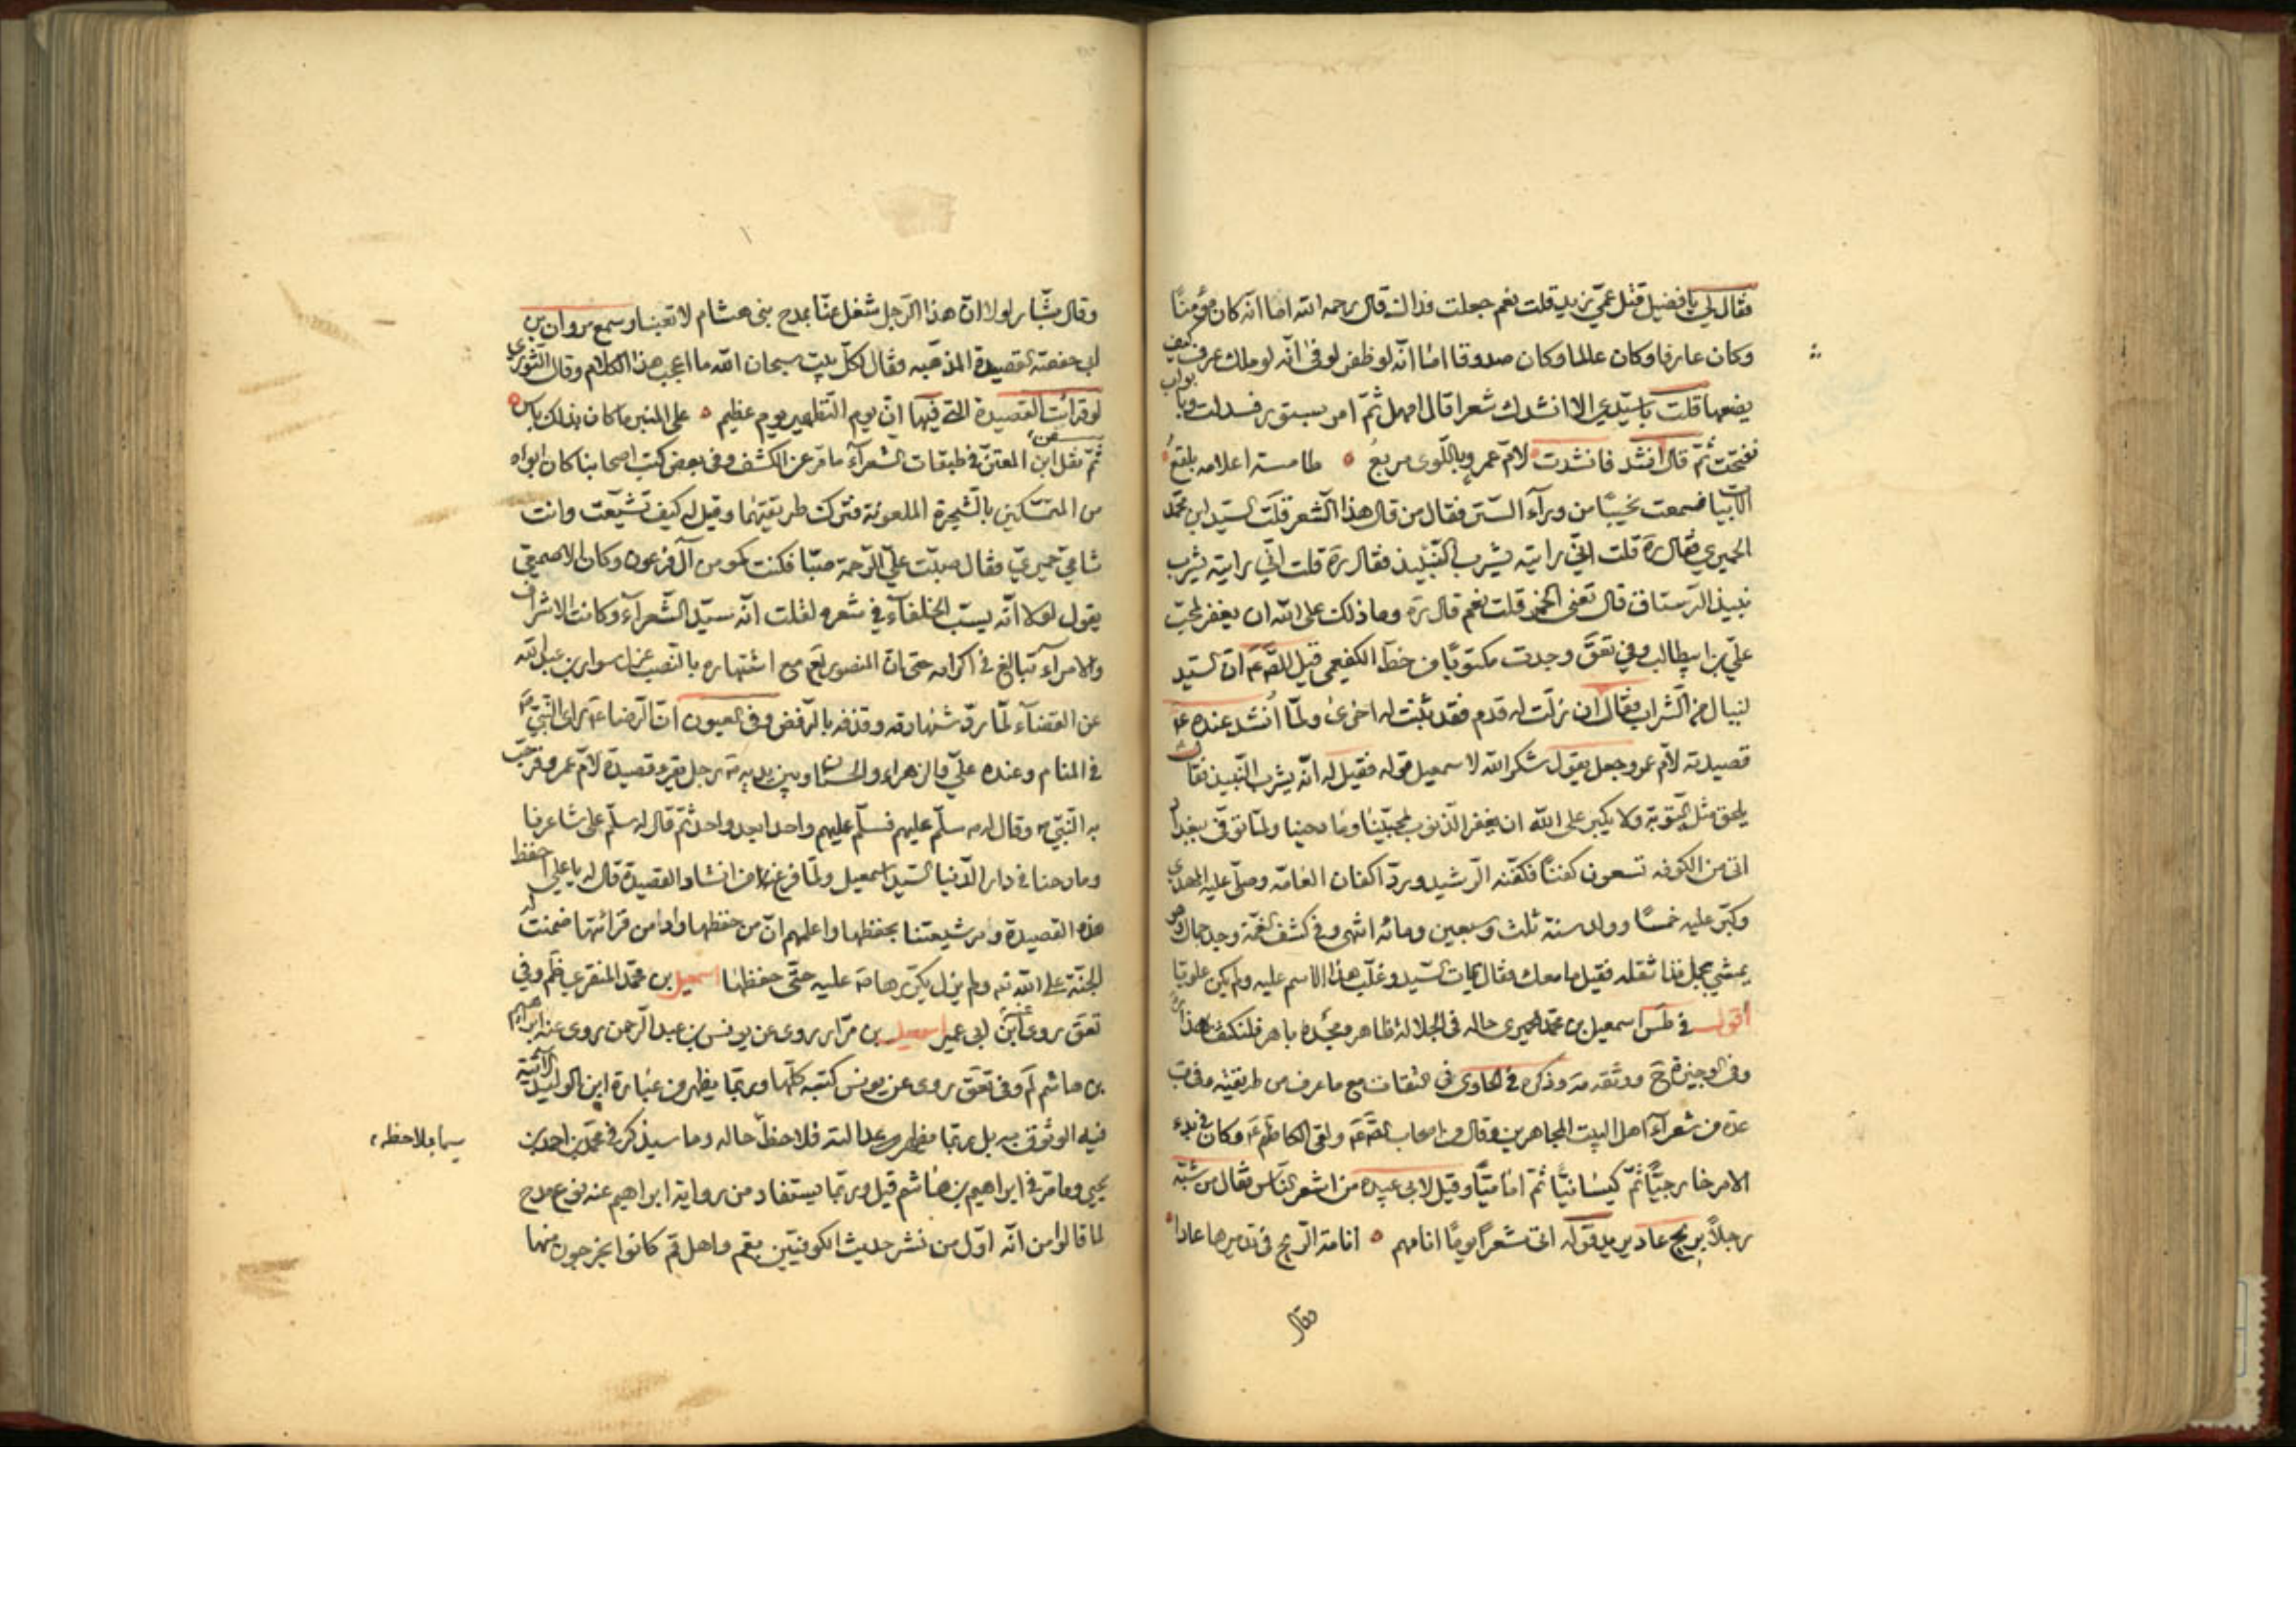 فقال لي يا فضيل قتل عمي زيد قلت نعم جعلت فداك قال رحمه الله اما انه كان مؤمنًا
وكان عارفا وكان عالما وكان صدوقا اما انه لو ظفر لوفى انه لو ملك عرف كيف
يضعها قلت يا سيدي الا انشدك شعرا قال امهل ثم امر بستور فسدلت وبابواب
ففتحت ثم قال انشد فانشدت لام عمرو باللوى مربع ۞ طامسة اعلامه بلقع
الابيات فسمعت نحيبًا من وراء الستر فقال من قال هذا الشعر قلت السيد ابن محمد
الحميري فقال ره قلت اني رايته يشرب النبيذ فقال ره قلت اني رايته يشرب
نبيذ الرستاق قال تعني الخمر قلت نعم قال ره وما ذلك على الله ان يغفر لمحب
علي بن ابيطالب وفي تعق وجدت مكتوبا من خط الكفعمي قيل للصّ ع ان السيد
لينال من الشراب فقال ان زلت له قدم فقد ثبتت له اخرى ولما أنشد عنده ع
قصيدته لام عمرو جعل يقول شكر الله لاسمعيل قوله فقيل له انه يشرب النبيذ فقال
يلحق مثله التوبة ولا يكبر على الله ان يغفر الذنوب لمحبينا ومادحينا ولما توفى ببغداد
اتى من الكوفه تسعون كفنًا فكفنه الرشيد ورد اكفان العامه وصلى عليه المهدي
وكبر عليه خمسًا وولد سنة ثلث وسبعين ومائه انتهى وفي كشف الغمة وجد حمال وهو
يمشي بحمل فذا ثقله فقيل ما معك فقال ميميات السيد وغلب هذا الاسم عليه ولم يكن علويا
أقول في طس اسمعيل بن محمد الحميري حاله في الجلالة ظاهر ومجده باهر فلنكتف بهذا
وفي الوجيزة ح ووثقه مه وذكره في الحاوي في الثقات مع ما عرف من طريقته وفي ب
عده من شعراء اهل البيت المجاهرين وقال من اصحاب الصّ ع ولقى الكاظم ع وكان في بدء
الامر خارجيًّا ثم كيسانيًّا ثم اماميًّا وقيل لابي عبيده من اشعر الناس فقال من شبه
رجلاً بريح عاد يريد قوله اتى شعرًا يومًا انامهم ۞ انامة الريح في تدميرها عادا
فقال
وقال بشار لولا ان هذا الرجل شغل عنا بمدح بني هشام لاتعبنا وسمع مروان بن
ابي حفصة القصيدة المذهبه فقال لكل بيت سبحان الله ما اعجب هذا الكلام وقال الثوري
لو قرات القصيدة التي فيها ان يوم التطهير يوم عظيم ۞ على المنبر ما كان بذلك باس
ثم نقل عن ابن المعتز في طبقات الشعراء ما مر عن الكشف وفي بعض كتب اصحابنا كان ابواه
من المتمسكين بالشجرة الملعونة فترك طريقتهما وقيل له كيف تشيعت وانت
شامي حميري فقال صبت علي الرحمة صبا فكنت كمومن آل فرعون وكان الاصمعي
يقول لولا انه يسب الخلفاء في شعره لقلت انه سيد الشعراء وكانت الاشراف
والامراء تبالغ في اكرامه حتى ان المنصور مع اشتهاره بالنصب عزل سوار بن عبد الله
عن القضاء لما رد شهادته وقذفه بالرفض وفي العيون ان الرضا ع راى النبي ص
في المنام وعنده علي والزهراء والحسنان وبين يديه رجل يقرء قصيدة لام عمرو فرحب
به النبي ص وقال له سلم عليهم فسلم عليهم واحدا بعد واحد ثم قال له سلم على شاعرنا
ومادحنا في دار الدنيا السيد اسمعيل ولما فرغ من انشاد القصيدة قال له يا علي احفظ
هذه القصيدة وامر شيعتنا بحفظها واعلمهم ان من حفظها وادامن قرائتها ضمنت له
الجنة على الله ولم يزل يكررها عليه حتى حفظها اسمعيل بن محمد المنقري ظم وفي
تعق روى عنه ابن ابي عمير اسمعيل بن مرار روى عن يونس بن عبد الرحمن روى عنه ابراهيم
بن هاشم لم وفي تعق روى عن يونس كتبه كلها وربما يظهر من عبارة ابن الوليد الآتية
فيه الوثوق به بل ربما يظهر عدالته فلاحظ حاله وما سيذكر في محمد بن احمد بن
يحيى وما مر في ابراهيم بن هاشم قيل وربما يستفاد من رواية ابراهيم عنه نوع مدح
لما قالوا من انه اول من نشر حديث الكوفيين بقم واهل قم كانوا يخرجون منها
سيما بملاحظه